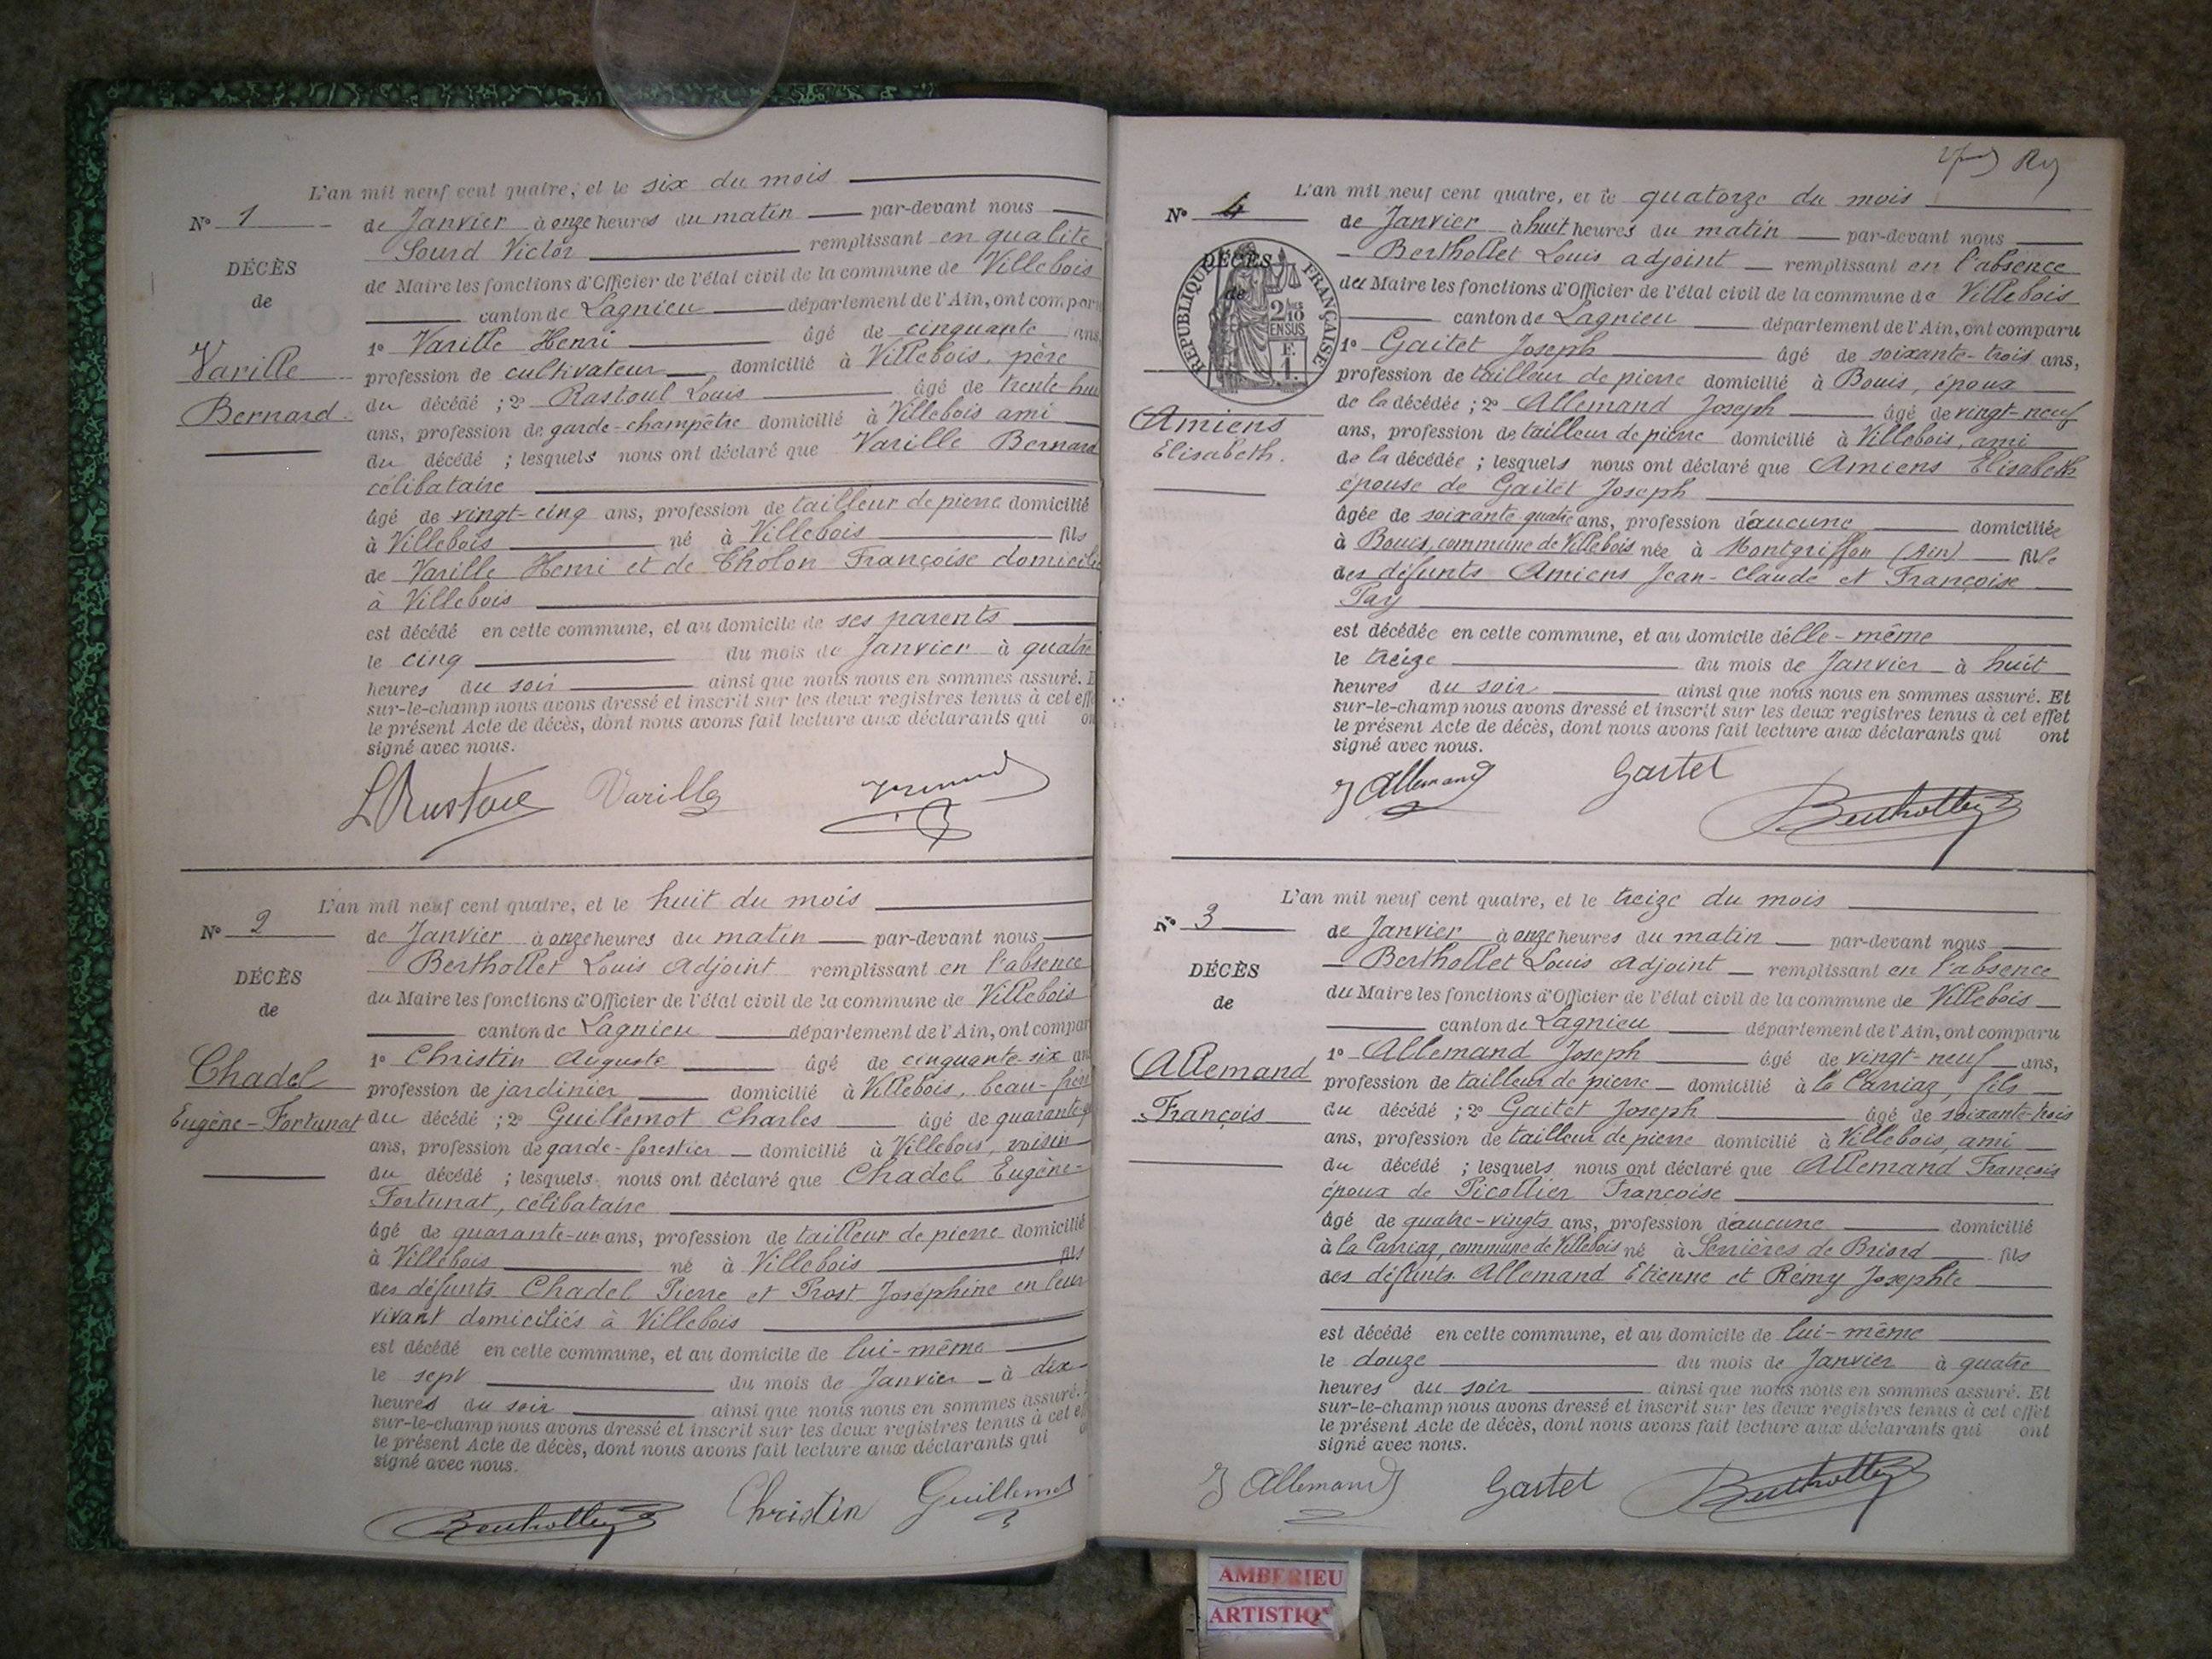 L'an mil neuf cent quatre, et le six du mois
N° 1
de Janvier à onze heures du matin par-devant nous
Sourd Victor remplissant en qualité
DÉCÈS
de Maire les fonctions d'Officier de l'état civil de la commune de Villebois
de
canton de Lagnieu département de l'Ain, ont compar
1° Varille Henri âgé de cinquante ans
Varille
profession de cultivateur domicilié à Villebois, père
du décédé ; 2° Rastoul Louis âgé de trente hui
Bernard
ans, profession de garde-champêtre domicilié à Villebois ami
du décédé ; lesquels nous ont déclaré que Varille Bernard
célibataire
âgé de vingt-cinq ans, profession de tailleur de pierre domicilié
à Villebois né à Villebois fils
de Varille Henri et de Cholon Françoise domicili
à Villebois
est décédé en cette commune, et au domicile de ses parents
le cinq du mois de Janvier à quatre
heures du soir ainsi que nous nous en sommes assuré. E
sur-le-champ nous avons dressé et inscrit sur les deux registres tenus à cet effe
le présent Acte de décès, dont nous avons fait lecture aux déclarants qui on
signé avec nous.
Varille
L'an mil neuf cent quatre, et le huit du mois
N° 2
de Janvier à onze heures du matin par-devant nous
Berthollet Louis adjoint remplissant en l'absence
DÉCÈS
du Maire les fonctions d'Officier de l'état civil de la commune de Villebois
de
canton de Lagnieu département de l'Ain, ont compar
1° Christin Auguste âgé de cinquante-six an
Chadel
profession de jardinier domicilié à Villebois, beau-frère
Eugène-Fortunat
du décédé ; 2° Guillemot Charles âgé de quarante
ans, profession de garde-forestier domicilié à Villebois, voisin
du décédé ; lesquels nous ont déclaré que Chadel Eugène-
Fortunat, célibataire
âgé de quarante-un ans, profession de tailleur de pierre domicilié
à Villebois né à Villebois fils
des défunts Chadel Pierre et Prost Joséphine en leur
vivant domiciliés à Villebois
est décédé en cette commune, et au domicile de lui-même
le sept du mois de Janvier à dix
heures du soir ainsi que nous nous en sommes assuré.
sur-le-champ nous avons dressé et inscrit sur les deux registres tenus à cet ef
le présent Acte de décès, dont nous avons fait lecture aux déclarants qui o
signé avec nous.
Berthollet Christin Guillemot
L'an mil neuf cent quatre, et le quatorze du mois
N° 4
de Janvier à huit heures du matin par-devant nous
Berthollet Louis adjoint remplissant en l'absence
DÉCÈS
de
REPUBLIQUE FRANÇAISE
2/10 EN SUS
F. 1.
du Maire les fonctions d'Officier de l'état civil de la commune de Villebois
canton de Lagnieu département de l'Ain, ont comparu
1° Gaitet Joseph âgé de soixante-trois ans,
profession de tailleur de pierre domicilié à Bouis, époux
de la décédée ; 2° Allemand Joseph âgé de vingt-neuf
Amiens
ans, profession de tailleur de pierre domicilié à Villebois, ami
Elisabeth.
de la décédée ; lesquels nous ont déclaré que Amiens Elisabeth
épouse de Gaitet Joseph
âgée de soixante quatre ans, profession d'aucune domiciliée
à Bouis, commune de Villebois née à Montgriffon (Ain) fille
des défunts Amiens Jean-Claude et Françoise
est décédée en cette commune, et au domicile d'elle-même
le treize du mois de Janvier à huit
heures du soir ainsi que nous nous en sommes assuré. Et
sur-le-champ nous avons dressé et inscrit sur les deux registres tenus à cet effet
le présent Acte de décès, dont nous avons fait lecture aux déclarants qui ont
signé avec nous.
J Allemand Gaitet Berthollet
L'an mil neuf cent quatre, et le treize du mois
N° 3
de Janvier à onze heures du matin par-devant nous
Berthollet Louis adjoint remplissant en l'absence
DÉCÈS
du Maire les fonctions d'Officier de l'état civil de la commune de Villebois
de
canton de Lagnieu département de l'Ain, ont comparu
1° Allemand Joseph âgé de vingt-neuf ans,
Allemand
profession de tailleur de pierre domicilié à la Carriaz, fils
François
du décédé ; 2° Gaitet Joseph âgé de soixante-trois
ans, profession de tailleur de pierre domicilié à Villebois, ami
du décédé ; lesquels nous ont déclaré que Allemand François
époux de Picollier Françoise
âgé de quatre-vingts ans, profession d'aucune domicilié
à la Carriaz, commune de Villebois né à Serrières de Briord fils
des défunts Allemand Etienne et Rémy Josephte
est décédé en cette commune, et au domicile de lui-même
le douze du mois de Janvier à quatre
heures du soir ainsi que nous nous en sommes assuré. Et
sur-le-champ nous avons dressé et inscrit sur les deux registres tenus à cet effet
le présent Acte de décès, dont nous avons fait lecture aux déclarants qui ont
signé avec nous.
J Allemand Gaitet Berthollet
AMBERIEU
ARTISTIQ